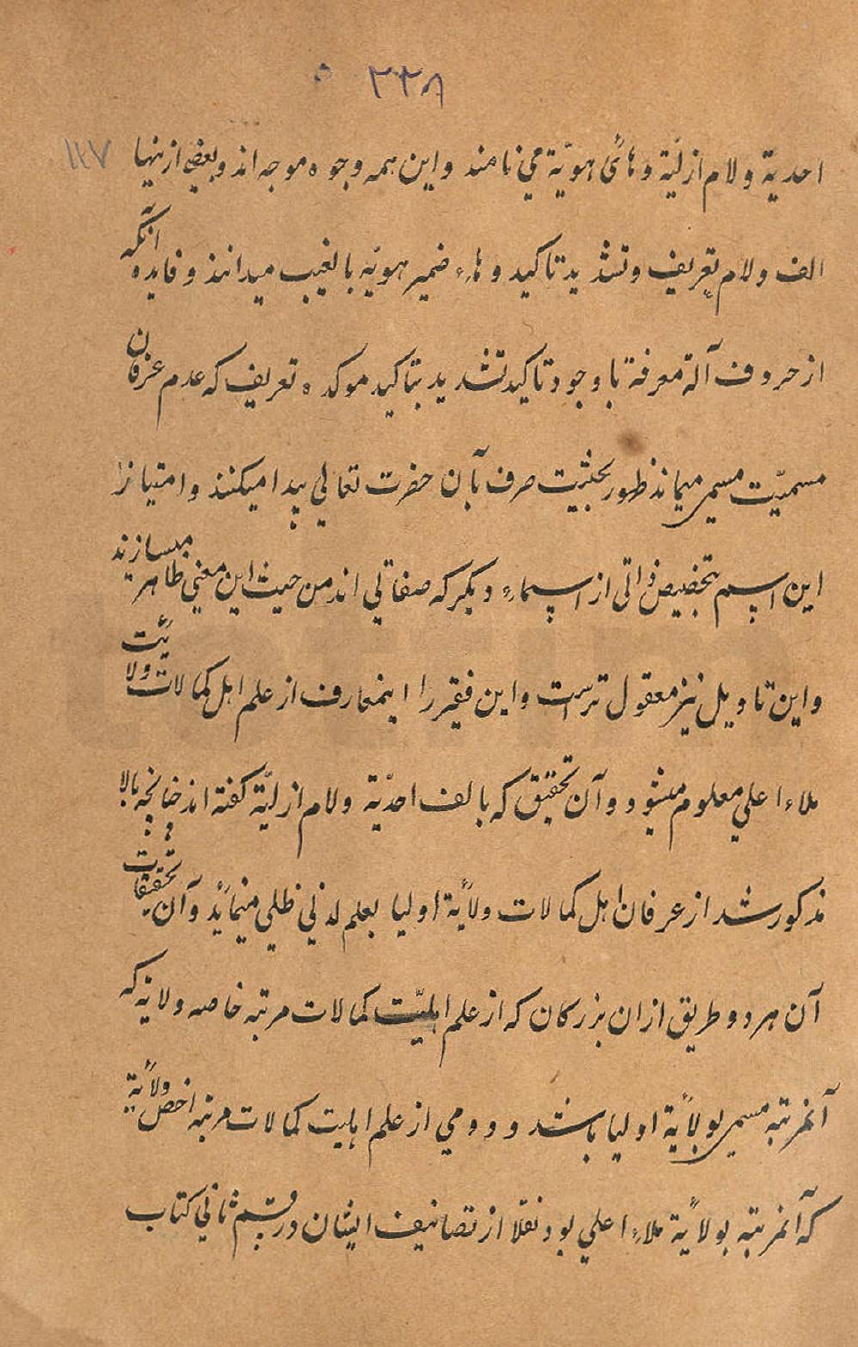 ۳۳۸
۱۱۷
احدیة ولام ازلیّة وهائ هویّة می نامند واین همه وجوه موجه اند وبعضے ازینها
الف ولام تعریف وتشدید تاکید وهاء ضمیر هویّه بالغیب میدانند وفایده آنکه
از حروف آلة معرفة با وجود تاکید تشدید بتاکید موکده تعریف که عدم عرفان
مسمیّت مسمی میماند ظهور بحیثیت صرف بآن حضرت تعالی پیدا میکنند وامتیاز
این اسم بتخصیص ذاتی از اسماء دیگر که صفاتی اند من حیث این معنی ظاهر میسازند
واین تاویل نیز معقول تر است واین فقیر را اینمعارف از علم اهل کمالات ولایت
ملاء اعلی معلوم میشود وآن تحقیق که بالف احدیّة ولام ازلیّة گفته اند چنانچه بالا
مذکور شد از عرفان اهل کمالات ولایة اولیا بعلم لدنی ظلی مینماید وآن تحقیقات
آن هر دو طریق ازان بزرگان که از علم اهلیّت کمالات مرتبه خاصه ولایة که
آنمرتبه مسمی بولایة اولیا باشد ودومی از علم اهلیت کمالات مرتبه اخص ولایة
که آنمرتبه بولایة ملاء اعلی بود نقلا از تصانیف ایشان در قسم ثانی کتاب